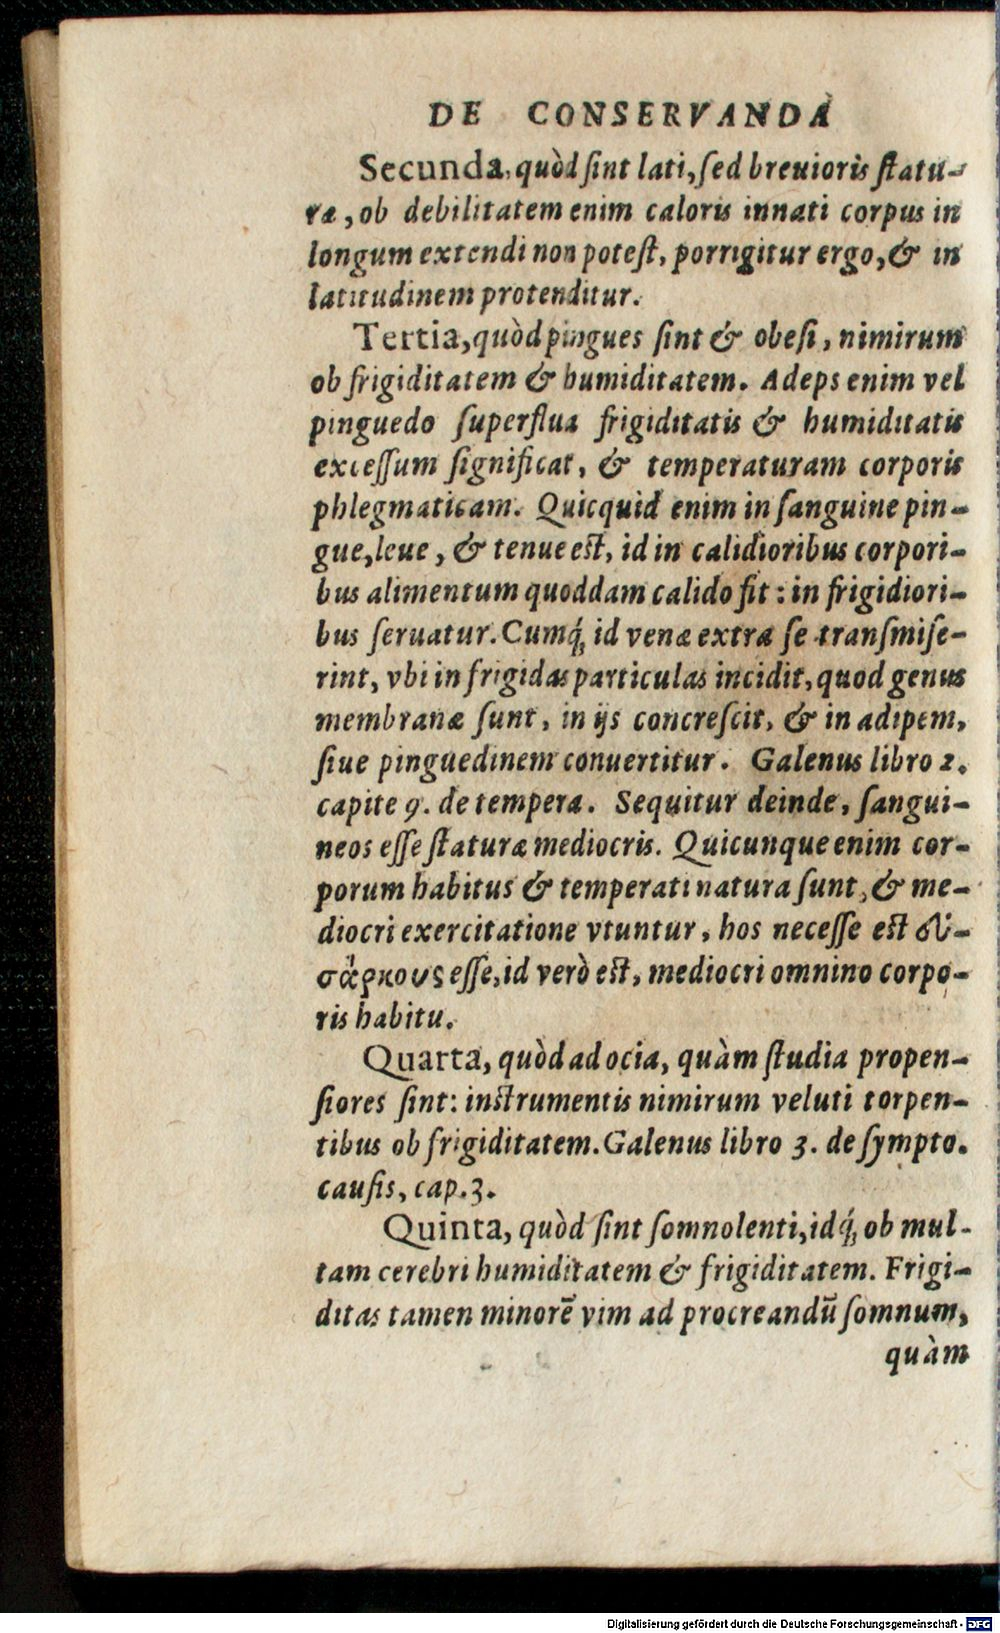 DE CONSERVANDA
Secunda, quòd ſint lati, ſed breuioris ſtatu-
ræ, ob debilitatem enim caloris innati corpus in
longum extendi non poteſt, porrigitur ergo, & in
latitudinem protenditur.
Tertia, quòd pingues ſint & obeſi, nimirum
ob frigiditatem & humiditatem. Adeps enim vel
pinguedo ſuperflua frigiditatis & humiditatis
exceſſum ſignificat, & temperaturam corporis
phlegmaticam. Quicquid enim in ſanguine pin-
gue, leue, & tenue eſt, id in calidioribus corpori-
bus alimentum quoddam calido fit: in frigidiori-
bus ſeruatur. Cumq́; id venæ extra ſe tranſmiſe-
rint, vbi in frigidas particulas incidit, quod genus
membranæ ſunt, in ijs concreſcit, & in adipem,
ſiue pinguedinem conuertitur. Galenus libro 2.
capite 9. de tempera. Sequitur deinde, ſangui-
neos eſſe ſtaturæ mediocris. Quicunque enim cor-
porum habitus & temperati natura ſunt, & me-
diocri exercitatione vtuntur, hos neceſſe eſt ἐυ-
σάρκους eſſe, id verò eſt, mediocri omnino corpo-
ris habitu.
Quarta, quòd ad ocia, quàm ſtudia propen-
ſiores ſint: inſtrumentis nimirum veluti torpen-
tibus ob frigiditatem. Galenus libro 3. de ſympto.
cauſis, cap. 3.
Quinta, quòd ſint ſomnolenti, idq́; ob mul-
tam cerebri humiditatem & frigiditatem. Frigi-
ditas tamen minorē vim ad procreandū ſomnum,
quàm
Digitalisierung gefördert durch die Deutsche Forschungsgemeinschaft - DFG